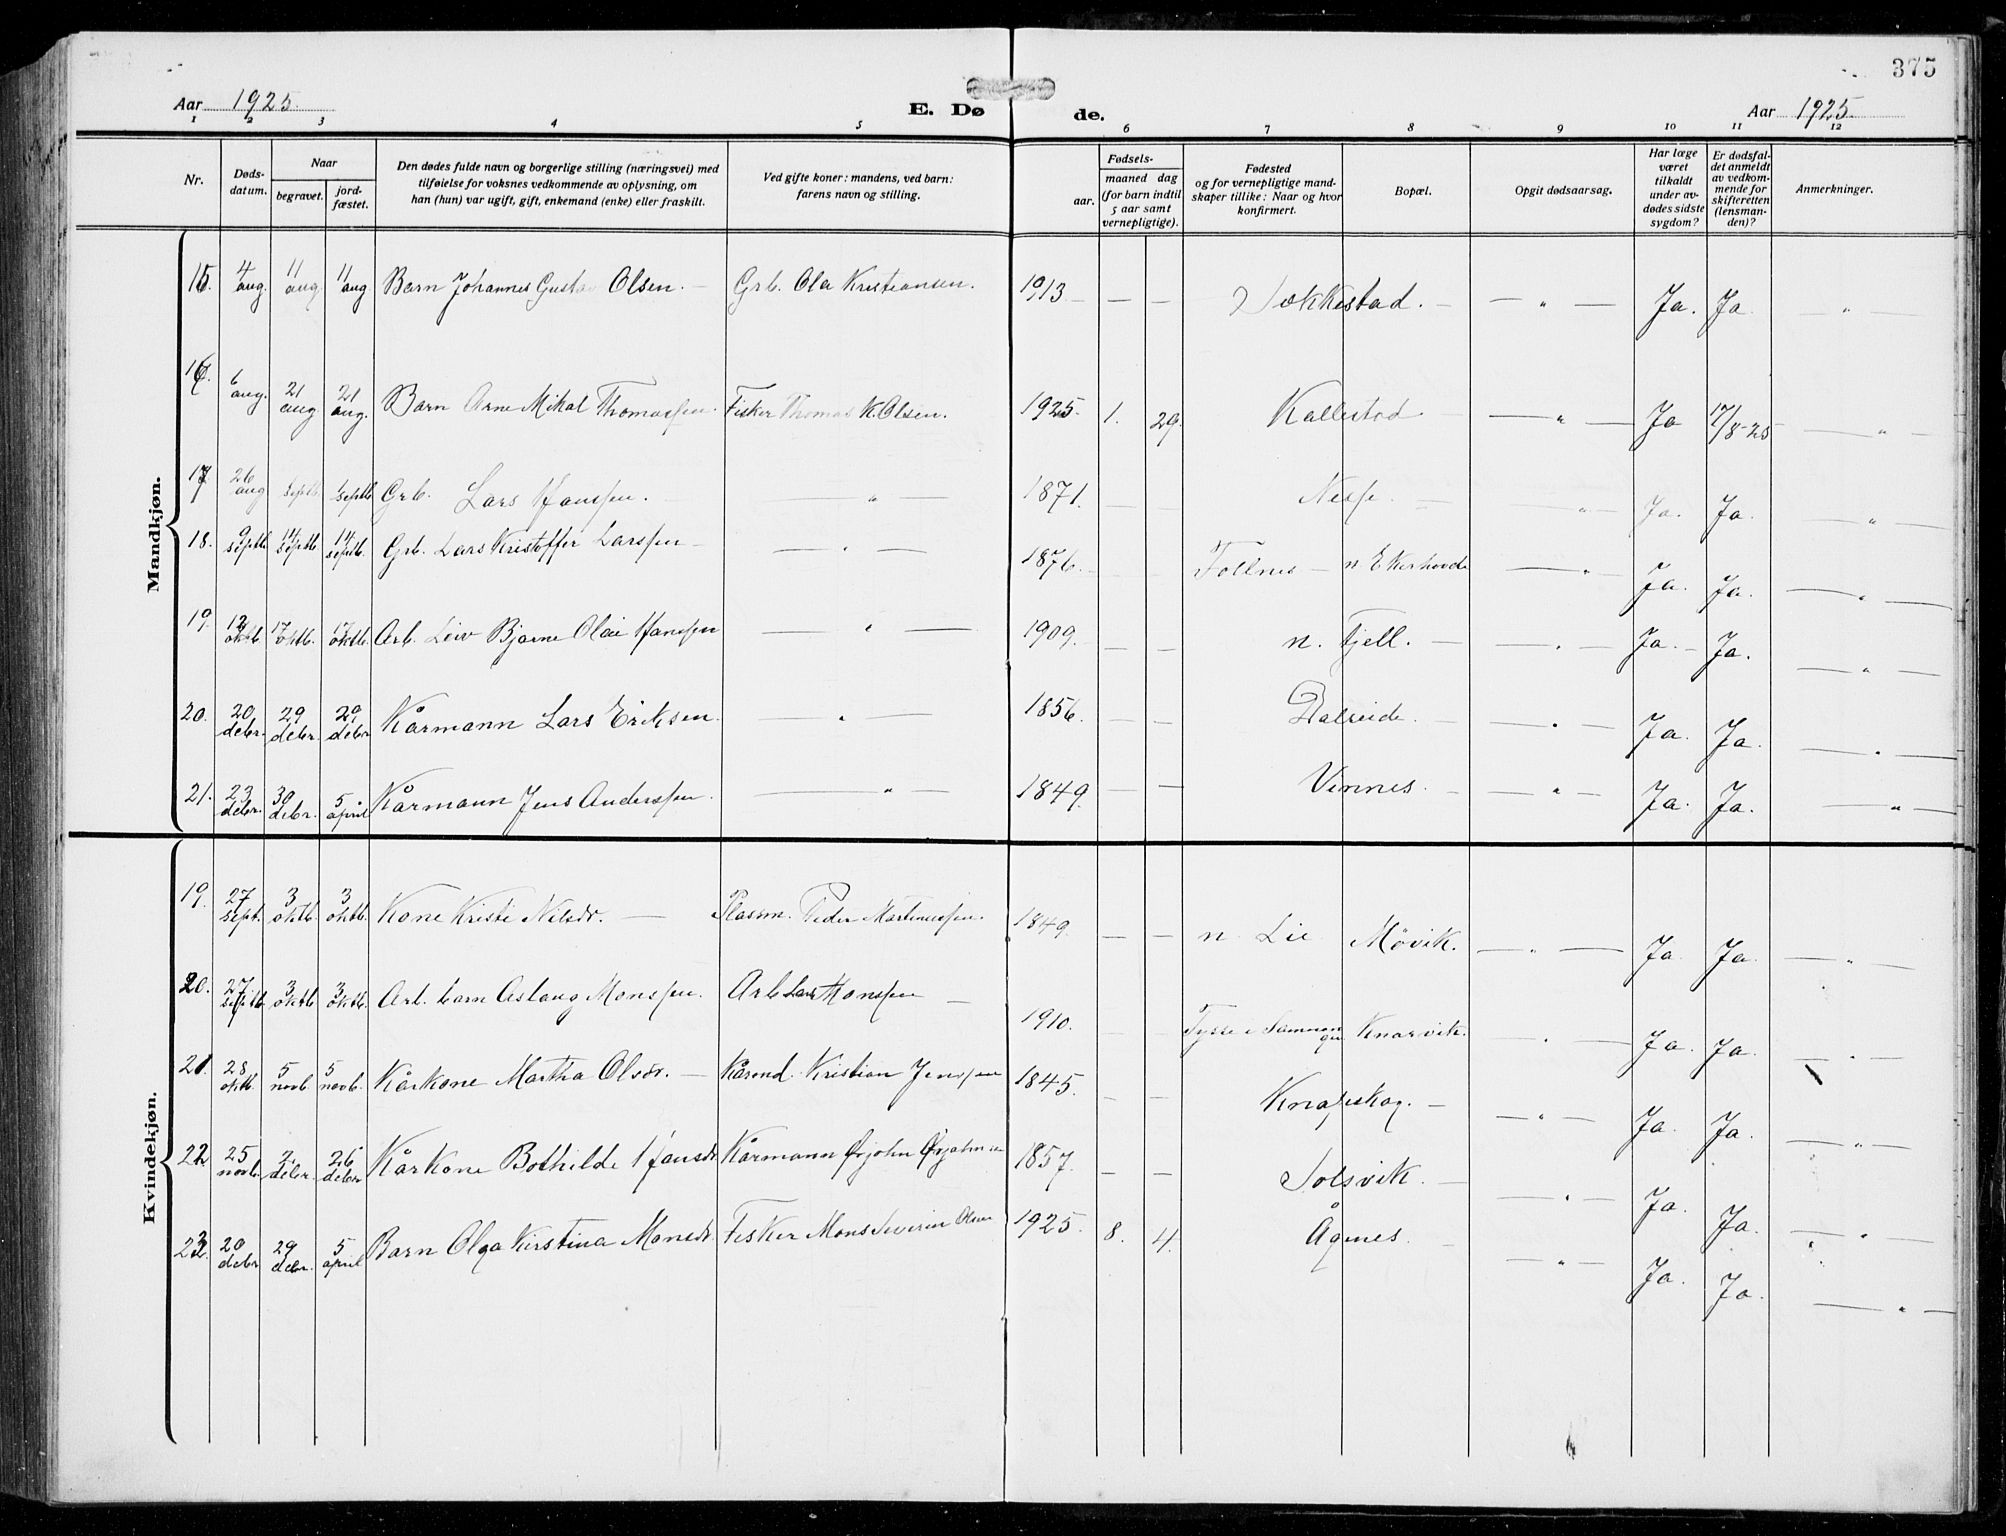 375
Aar 1925. E. Dø de. Aar 1925.
1 2 3 4 5 6 7 8 9 10 11 12
Nr. Døds-datum. Naar begravet. jord-fæstet. Den dødes fulde navn og borgerlige stilling (næringsvei) med tilføielse for voksnes vedkommende av oplysning, om han (hun) var ugift, gift, enkemand (enke) eller fraskilt. Ved gifte koner: mandens, ved barn: farens navn og stilling. Fødsels- aar. maaned dag (for barn indtil 5 aar samt vernepligtige). Fødested og for vernepligtige mand-skaper tillike: Naar og hvor konfirmert. Bopæl. Opgit dødsaarsag. Har læge været tilkaldt under av-dødes sidste sygdom? Er dødsfal-det anmeldt av vedkom-mende for skifteretten (lensman-den)? Anmerkninger.
Mandkjøn.
15. 4 aug. 11 aug 11 aug Barn Johannes Gustav Olsen. — Grb. Ola Kristiansen. 1913 — — Søkkestad. — — " — Ja. Ja — " —
16. 6 aug. 21 aug 21 aug. Barn Arne Mikal Thomassen. Fisker Thomas K. Olsen. 1925. 1. 29. Kallestad — " — Ja 17/8-25 — " —
17 26 aug septb. septb Grb. Lars Hanssen. — " — 1871. — — Nesse. — — " — Ja. Ja. — " —
18. 9 septb 14 septb. 14 septb. Grb. Lars Kristoffer Larssen — — " — 1876. — — Follnes — n. Ekerhovde — " — Ja. Ja. — " —
19. 12 oktb. 17 oktb. 17 oktb. Arb. Leiv Bjarne Olai Hanssen — " — 1909. — — n. Fjell. — — " — Ja. — Ja. — " —
20. 20 debr. 29 debr. 29 debr Kårmann Lars Eriksen. — " — 1856. — — Dalseide. — — " — Ja. Ja. — " —
21. 23 debr. 30 debr. 5 april Kårmann Jens Anderssen. — " — 1849. — — Vinnes. — — " — Ja. Ja. — " —
Kvindekjøn.
19. 27 sept. 3 oktb. 3 oktb. Kone Kristi Nilsdr. — Plassm. Peder Martinussen. 1849. — — n. Lie Møvik. — " — Ja Ja. — " —
20. 27 septb. 3 oktb 3 oktb. Arb. barn Aslaug Monssen. Arb Lars Monssen — 1910. — — Tysse i Samnanger Knarvik. — " — Ja. Ja. — " —
21. 28 oktb. 5 novb. 5 novb. Kårkone Martha Olsdr. — Kårmd. Kristian Jenssen 1845. — — Knapskog. — — " — Ja. Ja. — " —
22. 25 novb. 2 debr. 26 debr Kårkone Bothilde Hansdr. Kårmann Ørjohn Ørjohnsen 1857. — — Solsvik. — — " — Ja. Ja. — " —
23. 20 debr 29 debr. 5 april Barn Olga Kirstina Monsdr. Fisker Mons Severin Olsen 1925. 8. 4. Ågnes. — — " — Ja. Ja. — " —